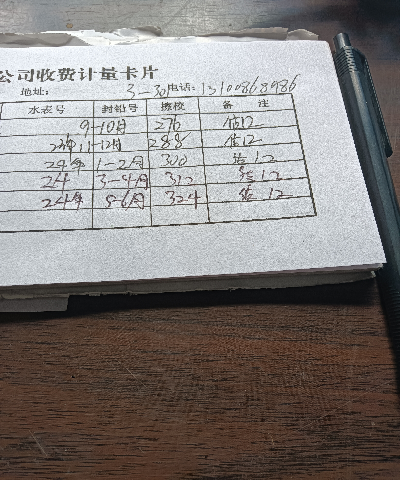 公司收费计量卡片
地址: 3-301 电话: 13100868986
水表号 封铅号 擦校 备 注
9-10月 276 估12
23年 11-12月 288 估12
24年 1-2月 300 估12
24 3-4月 312 估12
24年 5-6月 324 估12